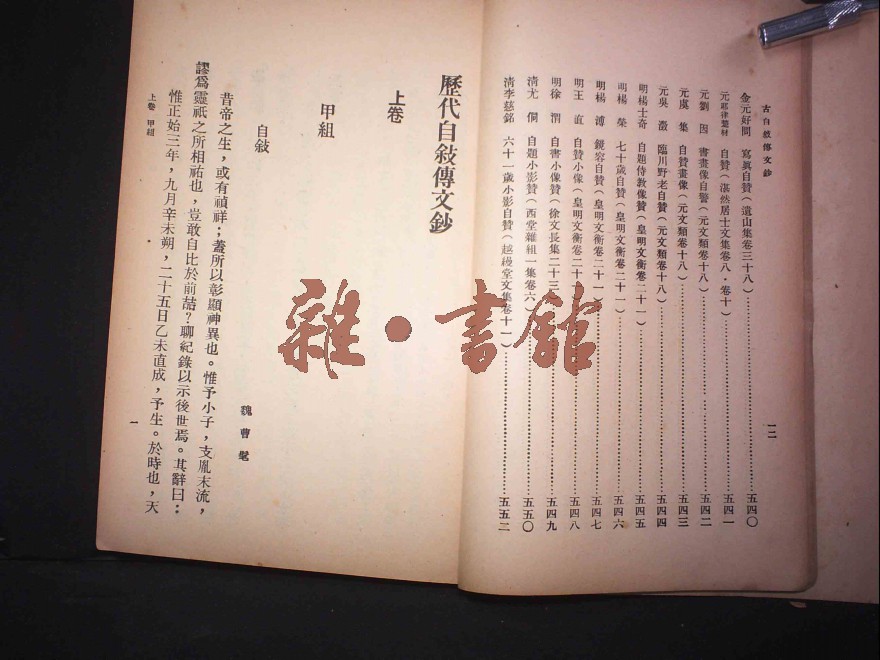 古自敍傳文鈔
金元好問 寫眞自贊(遺山集卷三十八)……五四〇
元耶律楚材 自贊(湛然居士文集卷八・卷十)……五四一
元劉因 書畫像自警(元文類卷十八)……五四二
元虞集 自贊畫像(元文類卷十八)……五四三
元吳澂 臨川野老自贊(元文類卷十八)……五四四
明楊士奇 自題侍教像贊(皇明文衡卷二十一)……五四五
明楊榮 七十歲自贊(皇明文衡卷二十一)……五四六
明楊溥 鏡容自贊(皇明文衡卷二十一)……五四七
明王直 自贊小像(皇明文衡卷二十……五四八
明徐渭 自書小像贊(徐文長集二十三……五四九
清尤侗 自題小影贊(西堂雜組一集卷六)……五五〇
清李慈銘 六十一歲小影自贊(越縵堂文集卷十一)……五五二
一二
歷代自敍傳文鈔
上卷
甲組
自敍
魏曹髦
昔帝之生,或有禎祥;蓋所以彰顯神異也。惟予小子,支胤末流,
謬爲靈祇之所相祐也,豈敢自比於前喆?聊紀錄以示後世焉。其辭曰:
惟正始三年,九月辛未朔,二十五日乙未直成,予生。於時也,天
上卷 甲組
一
雜・書館